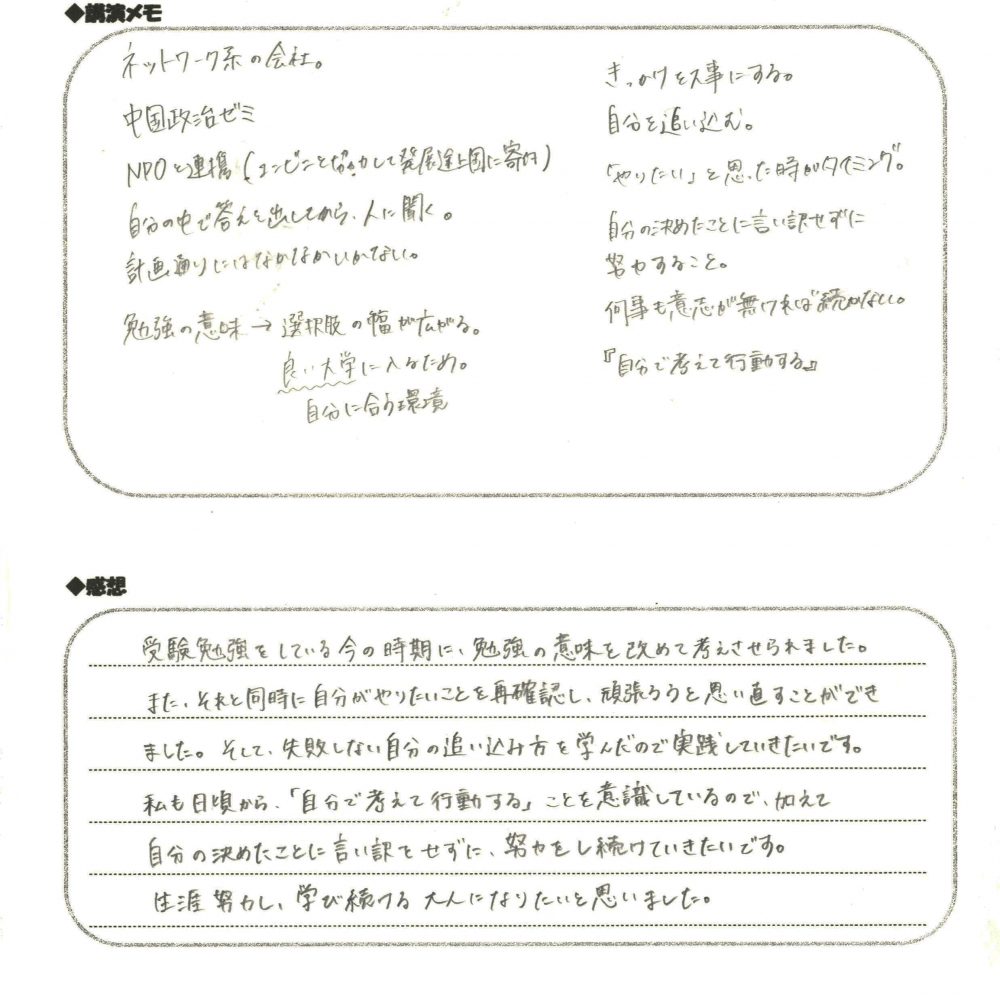 ◆講演メモ
ネットワーク系の会社。
中国政治ゼミ
NPOと連携(コンビニと協力して発展途上国に寄付)
自分の中で答えを出してから、人に聞く。
計画通りにはなかなかいかない。
勉強の意味→選択肢の幅が広がる。
良い大学に入るため。
自分に合う環境
きっかけを大事にする。
自分を追い込む。
「やりたい」と思った時がタイミング。
自分の決めたことに言い訳せずに
努力すること。
何事も意志が無ければ続かない。
『自分で考えて行動する』
◆感想
受験勉強をしている今の時期に、勉強の意味を改めて考えさせられました。
また、それと同時に自分がやりたいことを再確認し、頑張ろうと思い直すことができ
ました。そして、失敗しない自分の追い込み方を学んだので実践していきたいです。
私も日頃から、「自分で考えて行動する」ことを意識しているので、加えて
自分の決めたことに言い訳をせずに、努力をし続けていきたいです。
生涯努力し、学び続ける大人になりたいと思いました。